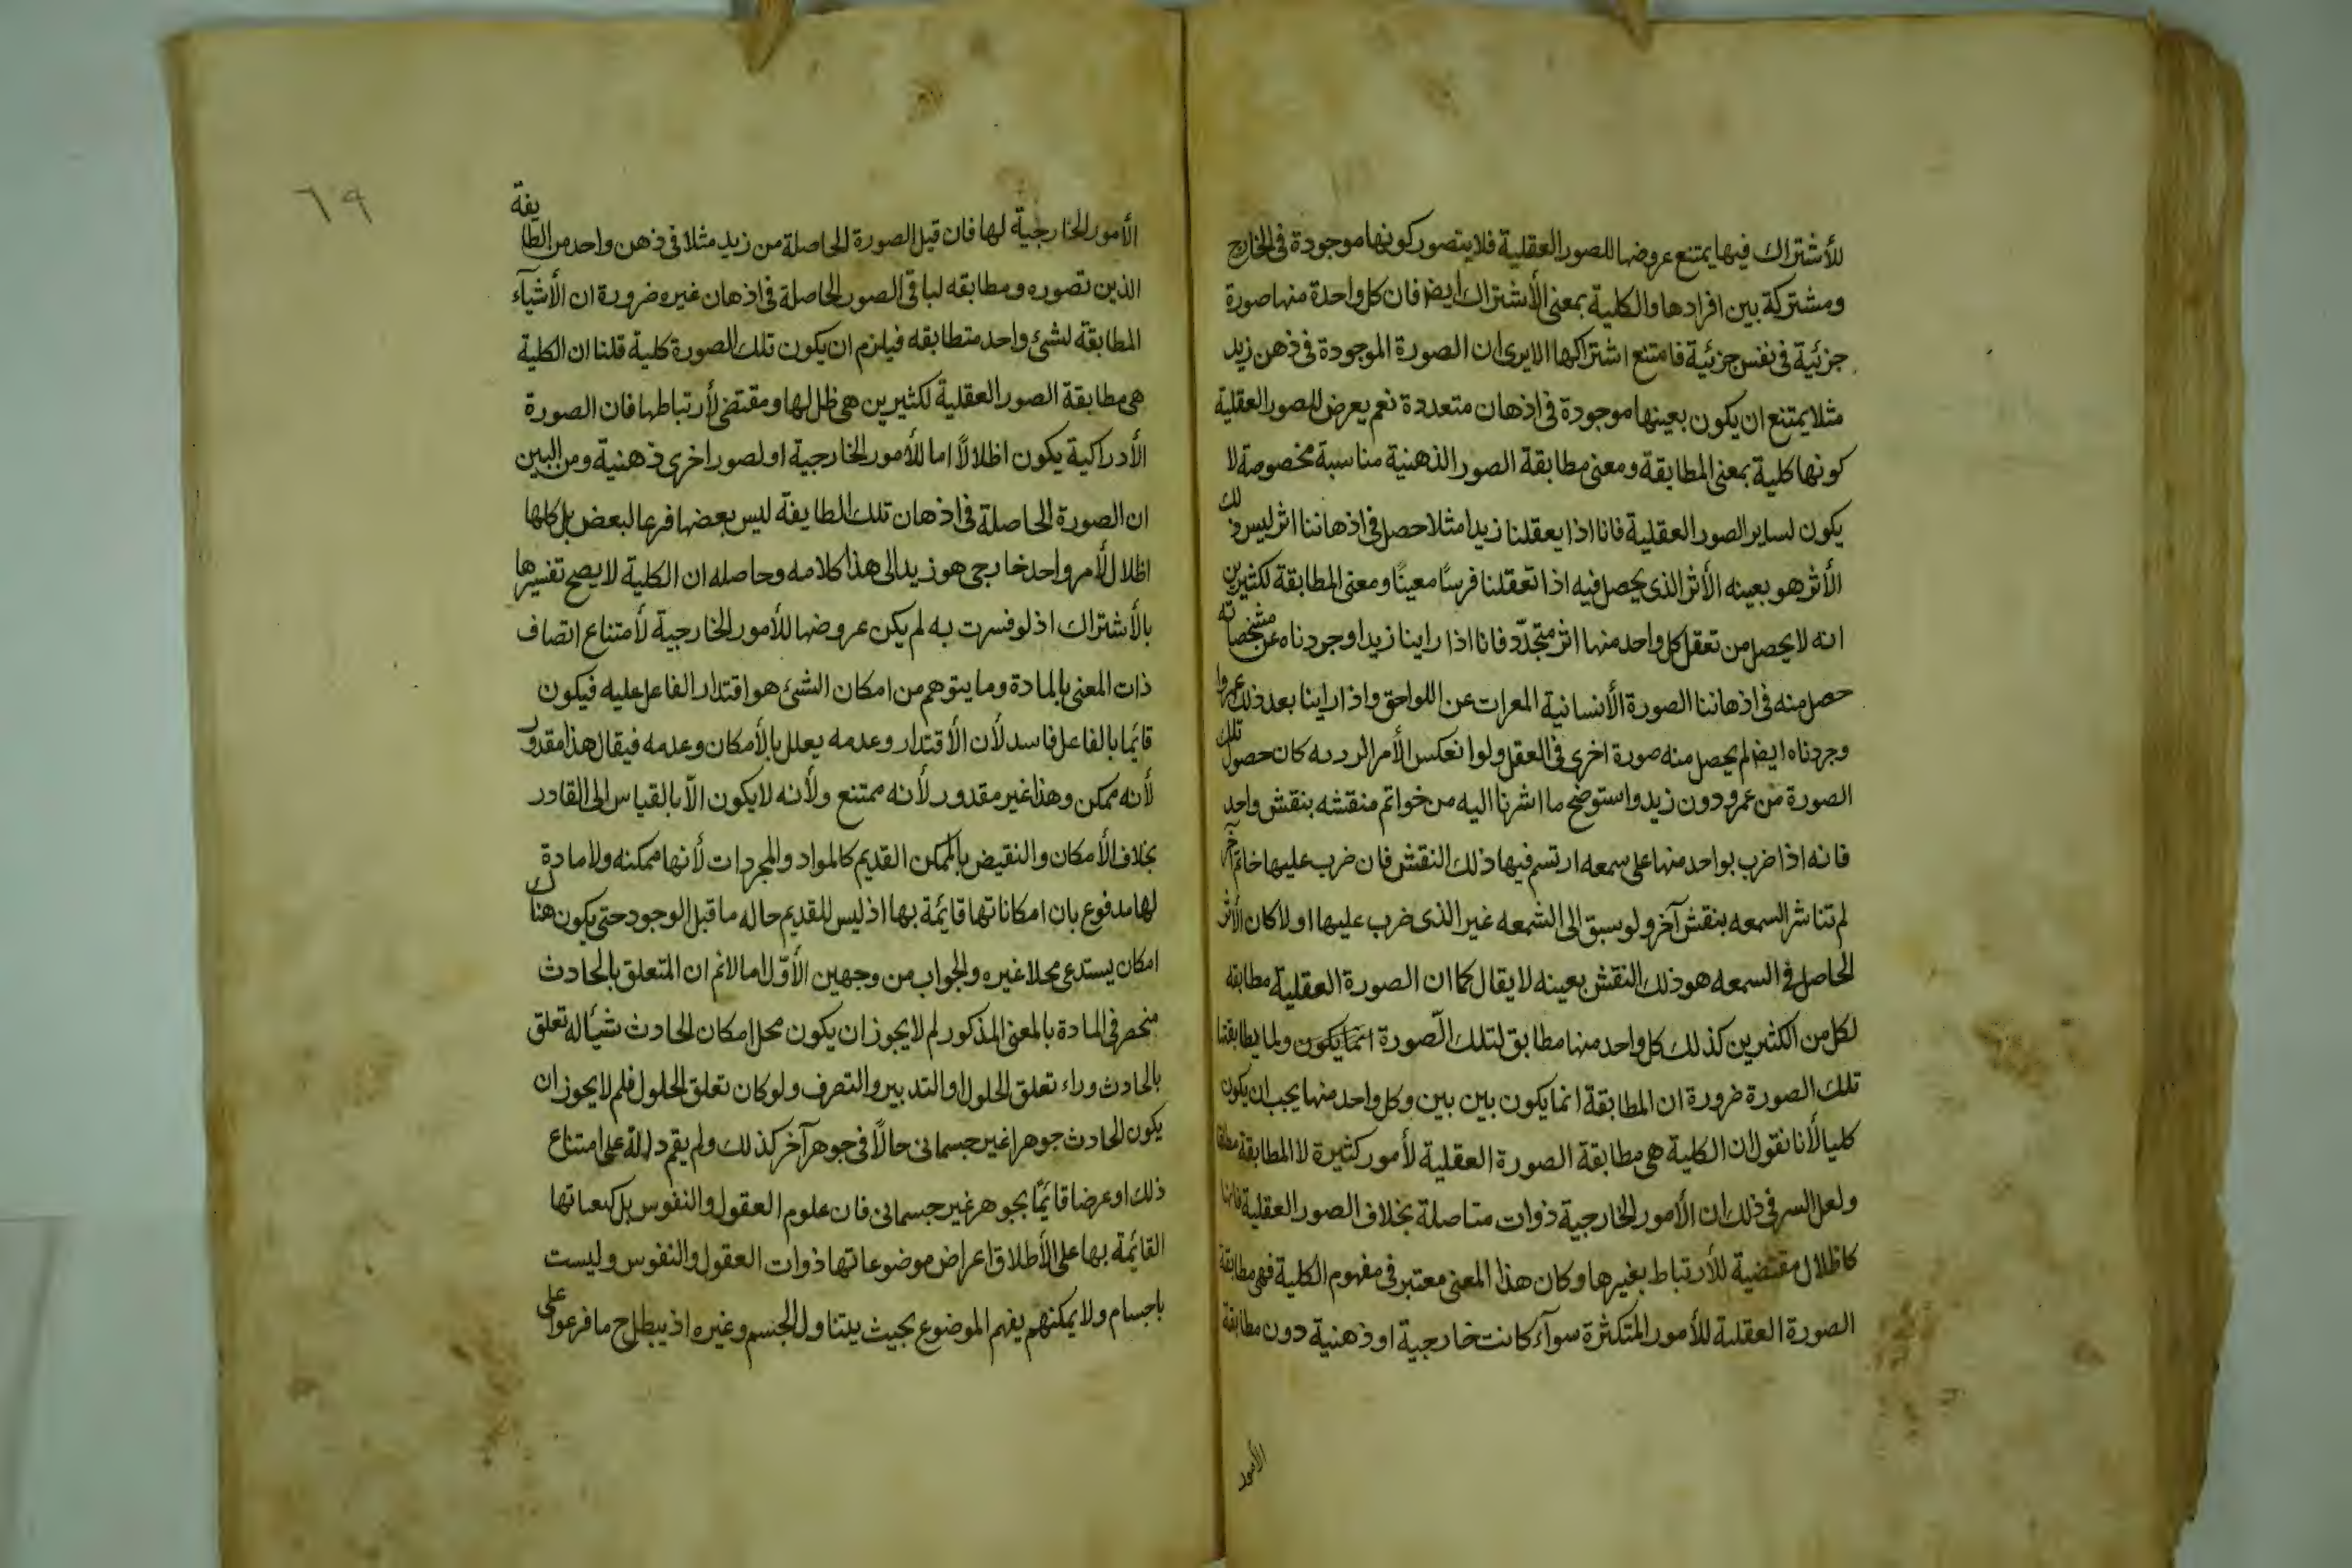 للأشتراك فيها يمتنع عروضها للصور العقلية فلا يتصور كونها موجودة فى الخارج
ومشتركة بين افرادها والكلية بمعنى الأشتراك ايضا فان كل واحدة منها صورة
جزئية فى نفس جزئية فامتنع اشتراكها الا يرى ان الصورة الموجودة فى ذهن زيد
مثلا يمتنع ان يكون بعينها موجودة فى اذهان متعددة نعم يعرض للصور العقلية
كونها كلية بمعنى المطابقة ومعنى مطابقة الصور الذهنية مناسبة مخصوصة لا
يكون لساير الصور العقلية فانا اذا يعقلنا زيدا مثلا حصل فى اذهاننا اثر ليس ذلك
الأثر هو بعينه الأثر الذى يحصل فيه اذا تعقلنا فرسًا معينًا ومعنى المطابقة لكثيرين
انه لا يحصل من تعقل كل واحد منها اثر متجدّد فانا اذا راينا زيدا وجردناه عن مشخصاته
حصل منه فى اذهاننا الصورة الأنسانية المعرات عن اللواحق واذا راينا بعد ذلك عمروا
وجردناه ايضا لم يحصل منه صورة اخرى فى العقل ولو انعكس الأمر كان حصول تلك
الصورة من عمرو دون زيد واستوضح ما اشرنا اليه من خواتم منقشه بنقش واحد
فانه اذا ضرب بواحد منها على سمعه ارتسم فيها ذلك النقش فان ضرب عليها خاتم آخر
لم تتاثر السمعه بنقش آخر ولو سبق الى الشمعه غير الذى ضرب عليها اولا كان الأثر
الحاصل فى السمعه هو ذلك النقش بعينه لا يقال كما ان الصورة العقلية مطابقه
لكل من الكثيرين كذلك كل واحد منها مطابق لتلك الصّورة انمّا يكون ولما يطابقنا
تلك الصورة ضرورة ان المطابقة انما يكون بين بين وكل واحد منها يجب ان يكون
كليا لأنا نقول ان الكلية هى مطابقة الصورة العقلية لأمور كثيرة لا المطابقة مطلقا
ولعل السر فى ذلك ان الأمور الخارجية ذوات متاصلة بخلاف الصور العقلية فانها
كاظلال مقتضية للأرتباط بغيرها وكان هذا المعنى معتبر فى مفهوم الكلية فهى مطابقة
الصورة العقلية للأمور المتكثرة سوآء كانت خارجية او ذهنية دون مطابقة
الأمور
٦٩
الأمور الخارجية لها فان قيل الصورة الحاصلة من زيد مثلا فى ذهن واحد من الطايفة
الذين تصوره ومطابقه لباقى الصور الحاصلة فى اذهان غيره ضرورة ان الأشيآء
المطابقة لشئ واحد متطابقه فيلزم ان يكون تلك الصورة كلية قلنا ان الكلية
هى مطابقة الصور العقلية لكثيرين هى ظل لها ومقتضى لأرتباطها فان الصورة
الأدراكية يكون اظلالاً اما للأمور الخارجية او لصور اخرى ذهنية ومن البين
ان الصورة الحاصلة فى اذهان تلك الطايفة ليس بعضها فرعا لبعض بل كلها
اظلال لأمر واحد خارجى هو زيد الى هذا كلامه وحاصله ان الكلية لا يصح تفسيرها
بالأشتراك اذ لو فسرت به لم يكن عروضها للأمور الخارجية لأمتناع اتصاف
ذات المعنى بالمادة وما يتوهم من امكان الشئ هو اقتدار الفاعل عليه فيكون
قائما بالفاعل فاسد لأن الأقتدار وعدمه يعلل بالأمكان وعدمه فيقال هذا مقدور
لأنه ممكن وهذا غير مقدور لأنه ممتنع ولأنه لا يكون الاّ بالقياس الى القادر
بخلاف الأمكان والنقيض بالممكن القديم كالمواد والمجردات لأنها ممكنه ولا مادة
لها مدفوع بان امكاناتها قايمة بها اذ ليس للقديم حاله ما قبل الوجود حتى يكون هناك
امكان يستدعى محلا غيره والجواب من وجهين الأوّل اما لانم ان المتعلق بالحادث
منحصر فى المادة بالمعنى المذكور لم لا يجوز ان يكون محل امكان الحادث شيئا له تعلق
بالحادث وراء تعلق الحلول او التدبير والتصرف ولو كان تعلق الحلول فلم لا يجوز ان
يكون الحادث جوهرا غير جسمانى حالاً فى جوهر آخر كذلك ولم يقم دلالة على امتناع
ذلك او عرضا قايمًا بجوهر غير جسمانى فان علوم العقول والنفوس بل
القائمة بها على الأطلاق اعراض موضوعاتها ذوات العقول والنفوس وليست
باجسام ولا يمكنهم يفهم الموضوع بحيث يتناول الجسم وغيره اذ يبطل ح ما فرعوا على